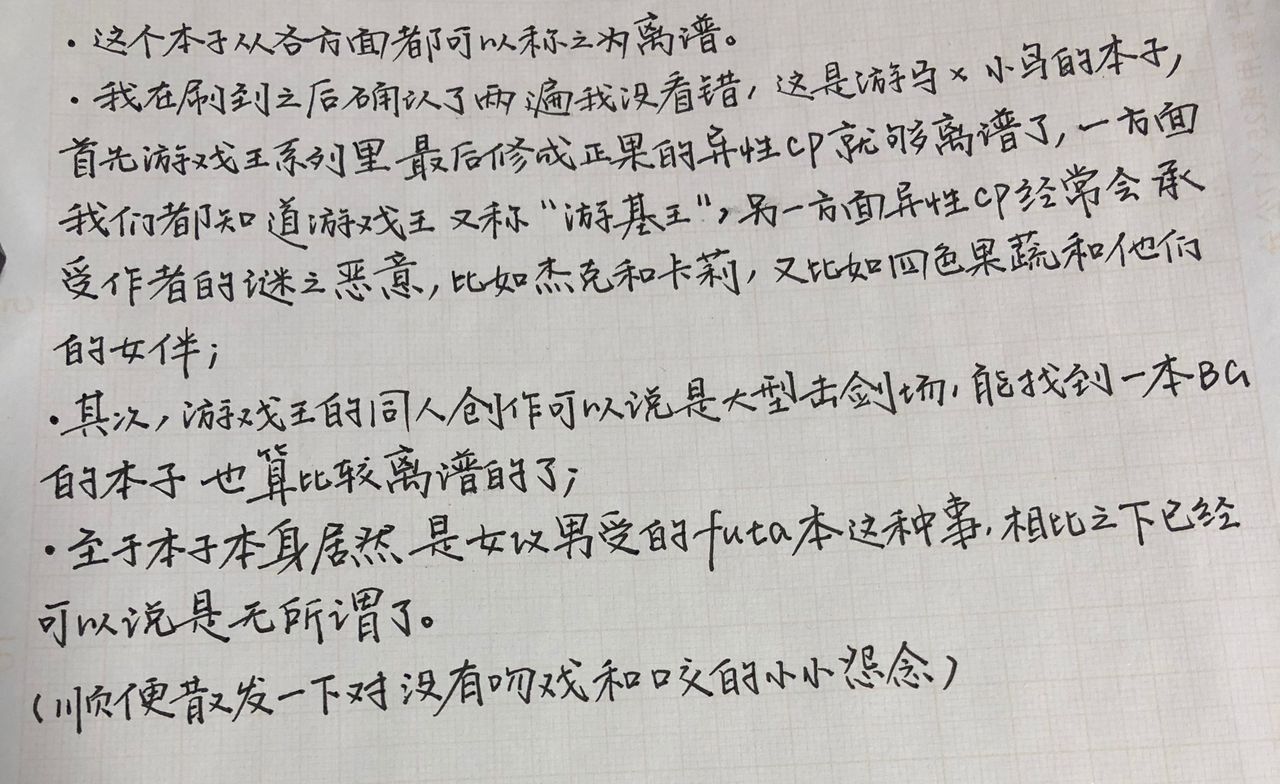 ·这个本子从各方面都可以称之为离谱。
·我在刷到之后确认了两遍我没看错，这是游马×小鸟的本子，
首先游戏王系列里最后修成正果的异性CP就够离谱了，一方面
我们都知道游戏王又称“游基王”，另一方面异性CP经常会承
受作者的谜之恶意，比如杰克和卡莉，又比如四色果蔬和他们
的女伴；
·其次，游戏王的同人创作可以说是大型击剑场，能找到一本BG
的本子也算比较离谱的了；
·至于本子本身居然是女攻男受的futa本这种事，相比之下已经
可以说是无所谓了。
（顺便散发一下对没有吻戏和口交的小小怨念）